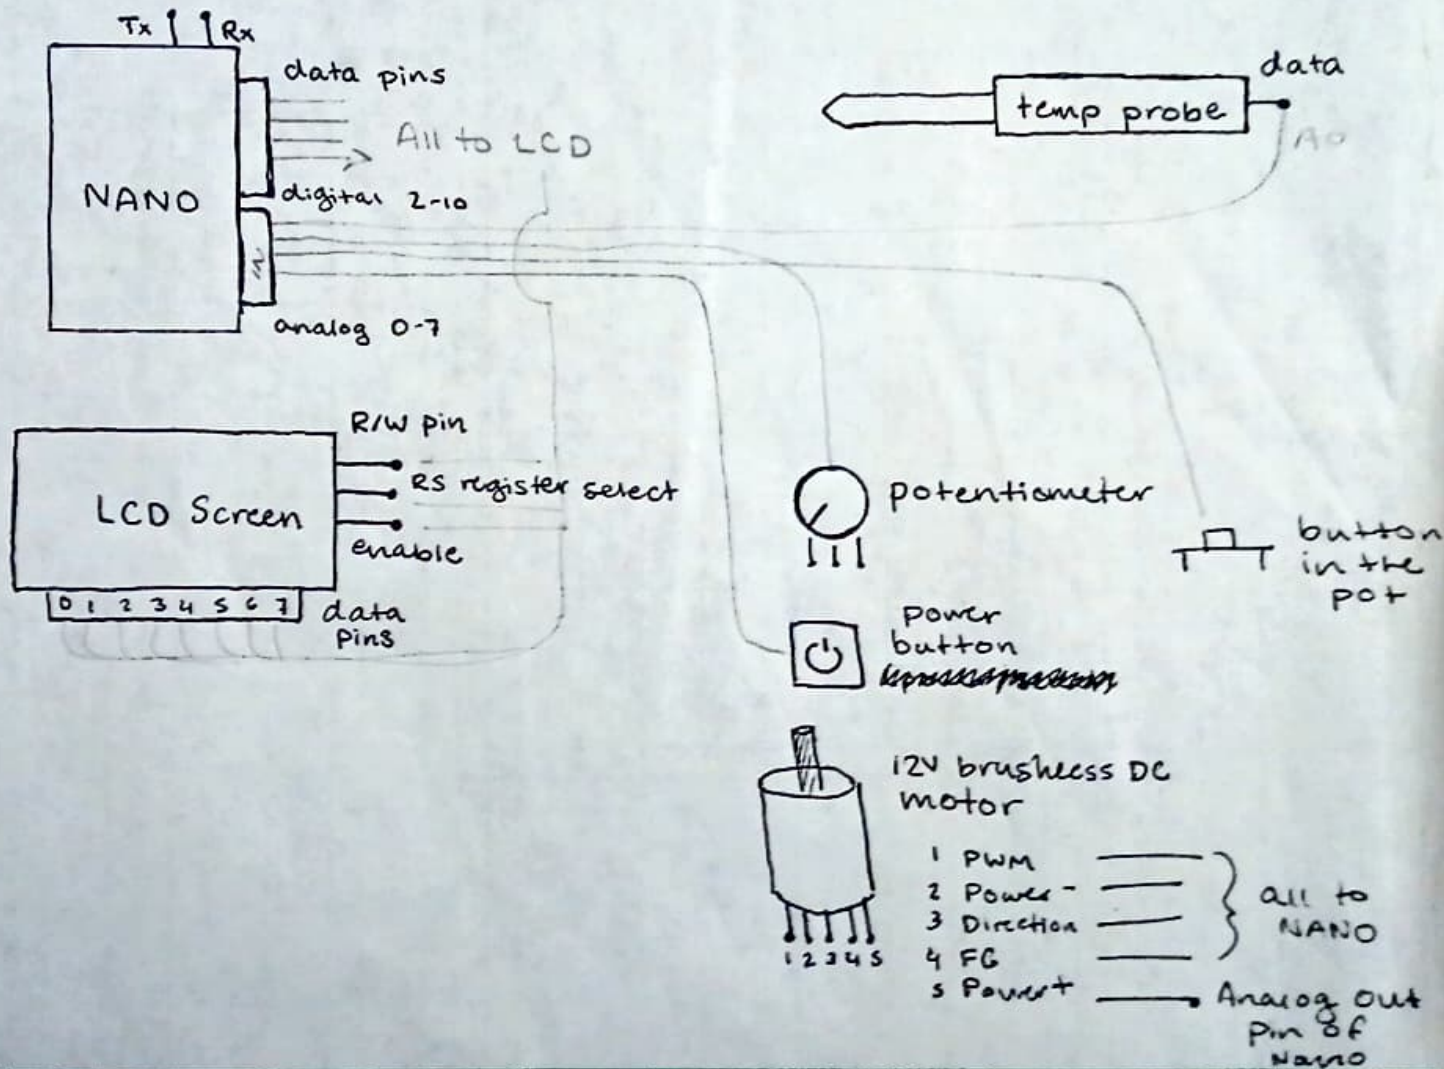 Tx Rx
data pins
All to LCD
NANO
digital 2-10
IN
analog 0-7
data
temp probe
A0
R/W pin
RS register select
LCD Screen
enable
0 1 2 3 4 5 6 7
data
pins
potentiometer
button
in the
pot
power
button
12V brushless DC
motor
1 PWM
2 Power-
3 Direction
4 FG
5 Power+
all to
NANO
1 2 3 4 5
Analog Out
pin of
Nano